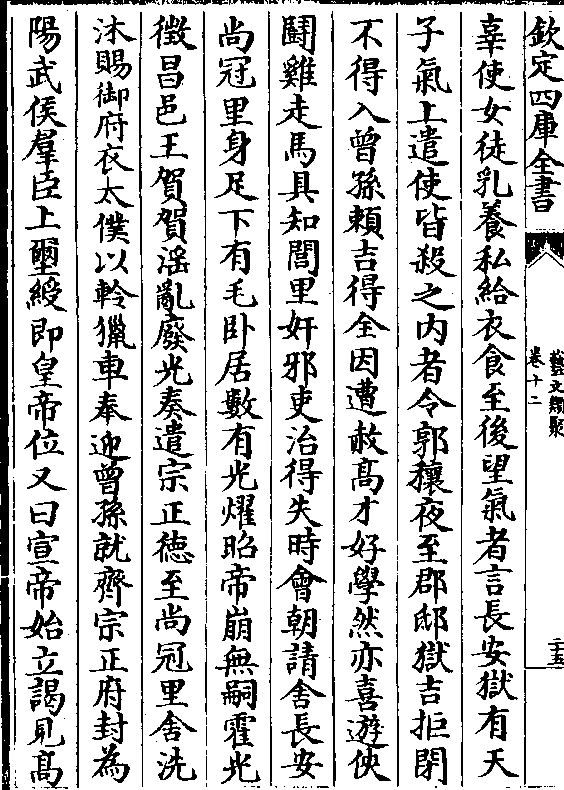 欽定四庫全書
藝文類聚
卷十二
二十五
辜使女徒乳養私給衣食至後望氣者言長安獄有天
子氣上遣使皆殺之内者令郭穰夜至郡邸獄吉拒閉
不得入曾孫頼吉得全因遭赦髙才好學然亦喜遊俠
鬭雞走馬具知閭里奸邪吏治得失時會朝請舍長安
尚冠里身足下有毛卧居數有光燿昭帝崩無嗣霍光
徴昌邑王賀賀淫亂廢光奏遣宗正徳至尚冠里舍洗
沐賜御府衣太僕以軨獵車奉迎曾孫就齊宗正府封為
陽武侯羣臣上璽綬即皇帝位又曰宣帝始立謁見髙